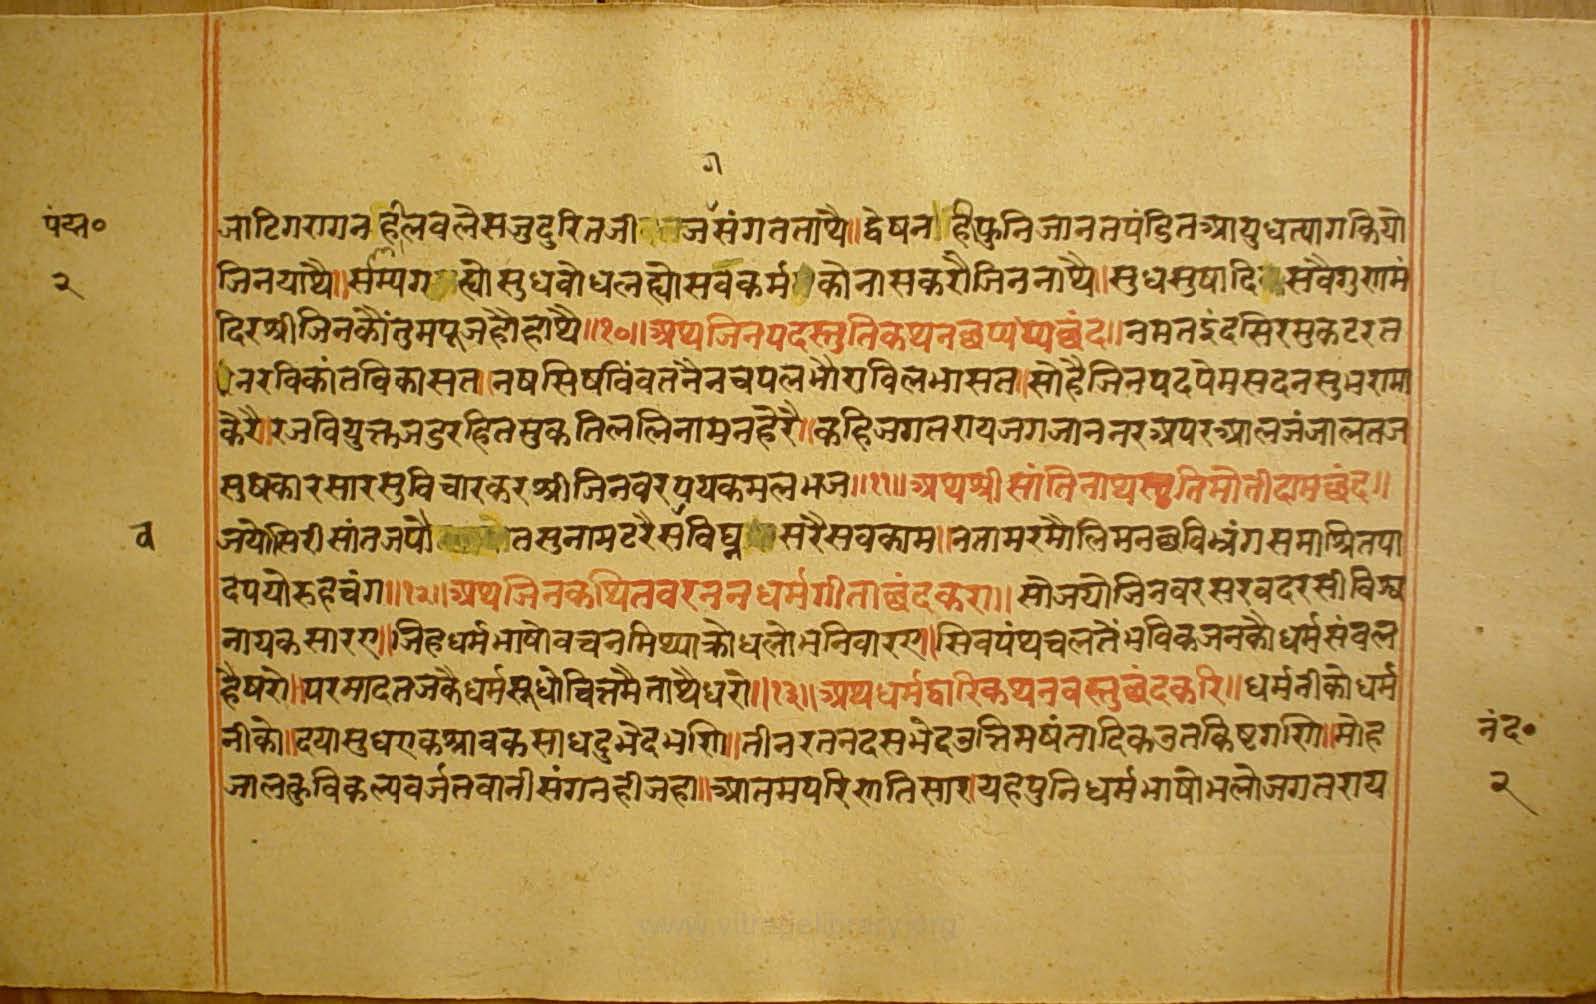 ग
पंद्म०
२
जाटिगरागन हीलवलैसजुदुरितजी जसंगततांथै॥द्वेषन हीफुनिजानतपंडितआयुधत्यागकियो
जिनयाथै॥सम्यग ह्योसुधबोधलह्योसवकर्म कोनासकरौजिननाथै॥सुधसुषादि सवैगुणमं
दिरश्रीजिनकौंतुमपूजहौहाथै॥१०॥अथजिनपदस्तुतिकथनछप्पयछंद॥नमतइंदसिरमुकटरत
नरविकांतविकासत।नषसिषविंवतनैनचपलभौंराविलभासत।सोहैजिनपदपेमसदनसुभरामा
कैरै।रजवियुक्तजडरहितमुकतिललिनामनहेरै।कहिजगतरायजगजाननरअपरआलजंजालतज
सुषकारसारसुविचारकरश्रीजिनवरपयकमलभज॥११॥अथश्रीसांतिनाथस्तुतिमोतीदामछंद॥
व
जयोसिरीसांतजपौ तसुनामटरैसविघ्न सरैसवकाम।नतामरमौलिमनछविभ्रंगसमाश्रितपा
दपयोरुहचंग॥१२॥अथजिनकथितवरननधर्मगीताछंदकरा॥सोजयोजिनवरसरवदरसीविश्व
नायकसारए॥जिहधर्मभाषोवचनमिथ्याक्रोधलोभनिवारए।सिवपंथचलतेंभविकजनकौधर्मसंवल
हैषरो॥परमादतजकैधर्मसूधोचित्तमैताथैधरो॥१३॥अथधर्मद्वारिकथनवस्तुछंदकरि॥धर्मनीकोधर्म
नीको॥दयासुधएकश्रावकसाधदुभेदभणि॥तीनरतनदसभेदउत्तिमषंतादिकउतकिष्टगणि॥मोह
जालकुविकल्पवर्जतवानीसंगनहीजहा॥आतमपरिणतिसारायहपुनिधर्मभाषोभलोजगतराय
नंद०
२
www.vitragelibrary.org